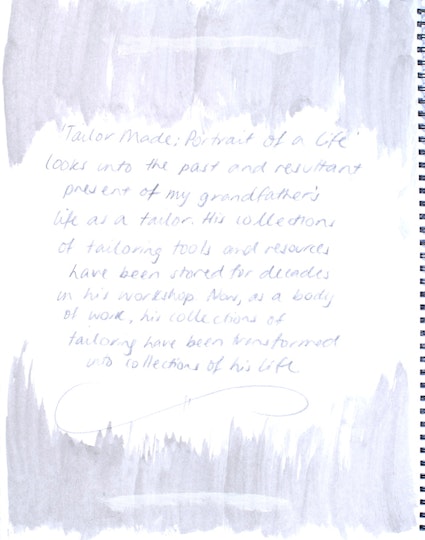 'Tailor Made: Portrait of a Life'
looks into the past and resultant
present of my grandfather's
life as a tailor. His collections
of tailoring tools and resources
have been stored for decades
in his workshop. Now, as a body
of work, his collections of
tailoring have been transformed
into collections of his life